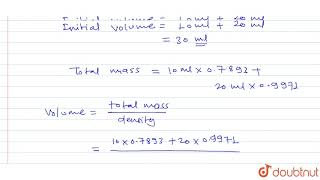 Initial volume = 10ml + 20 ml
= 30 ml
Total mass = 10ml x 0.7893 +
20 ml x 0.9971
Volume = total mass
density
= 10 x 0.7893 + 20 x 0.9971
doubtnut